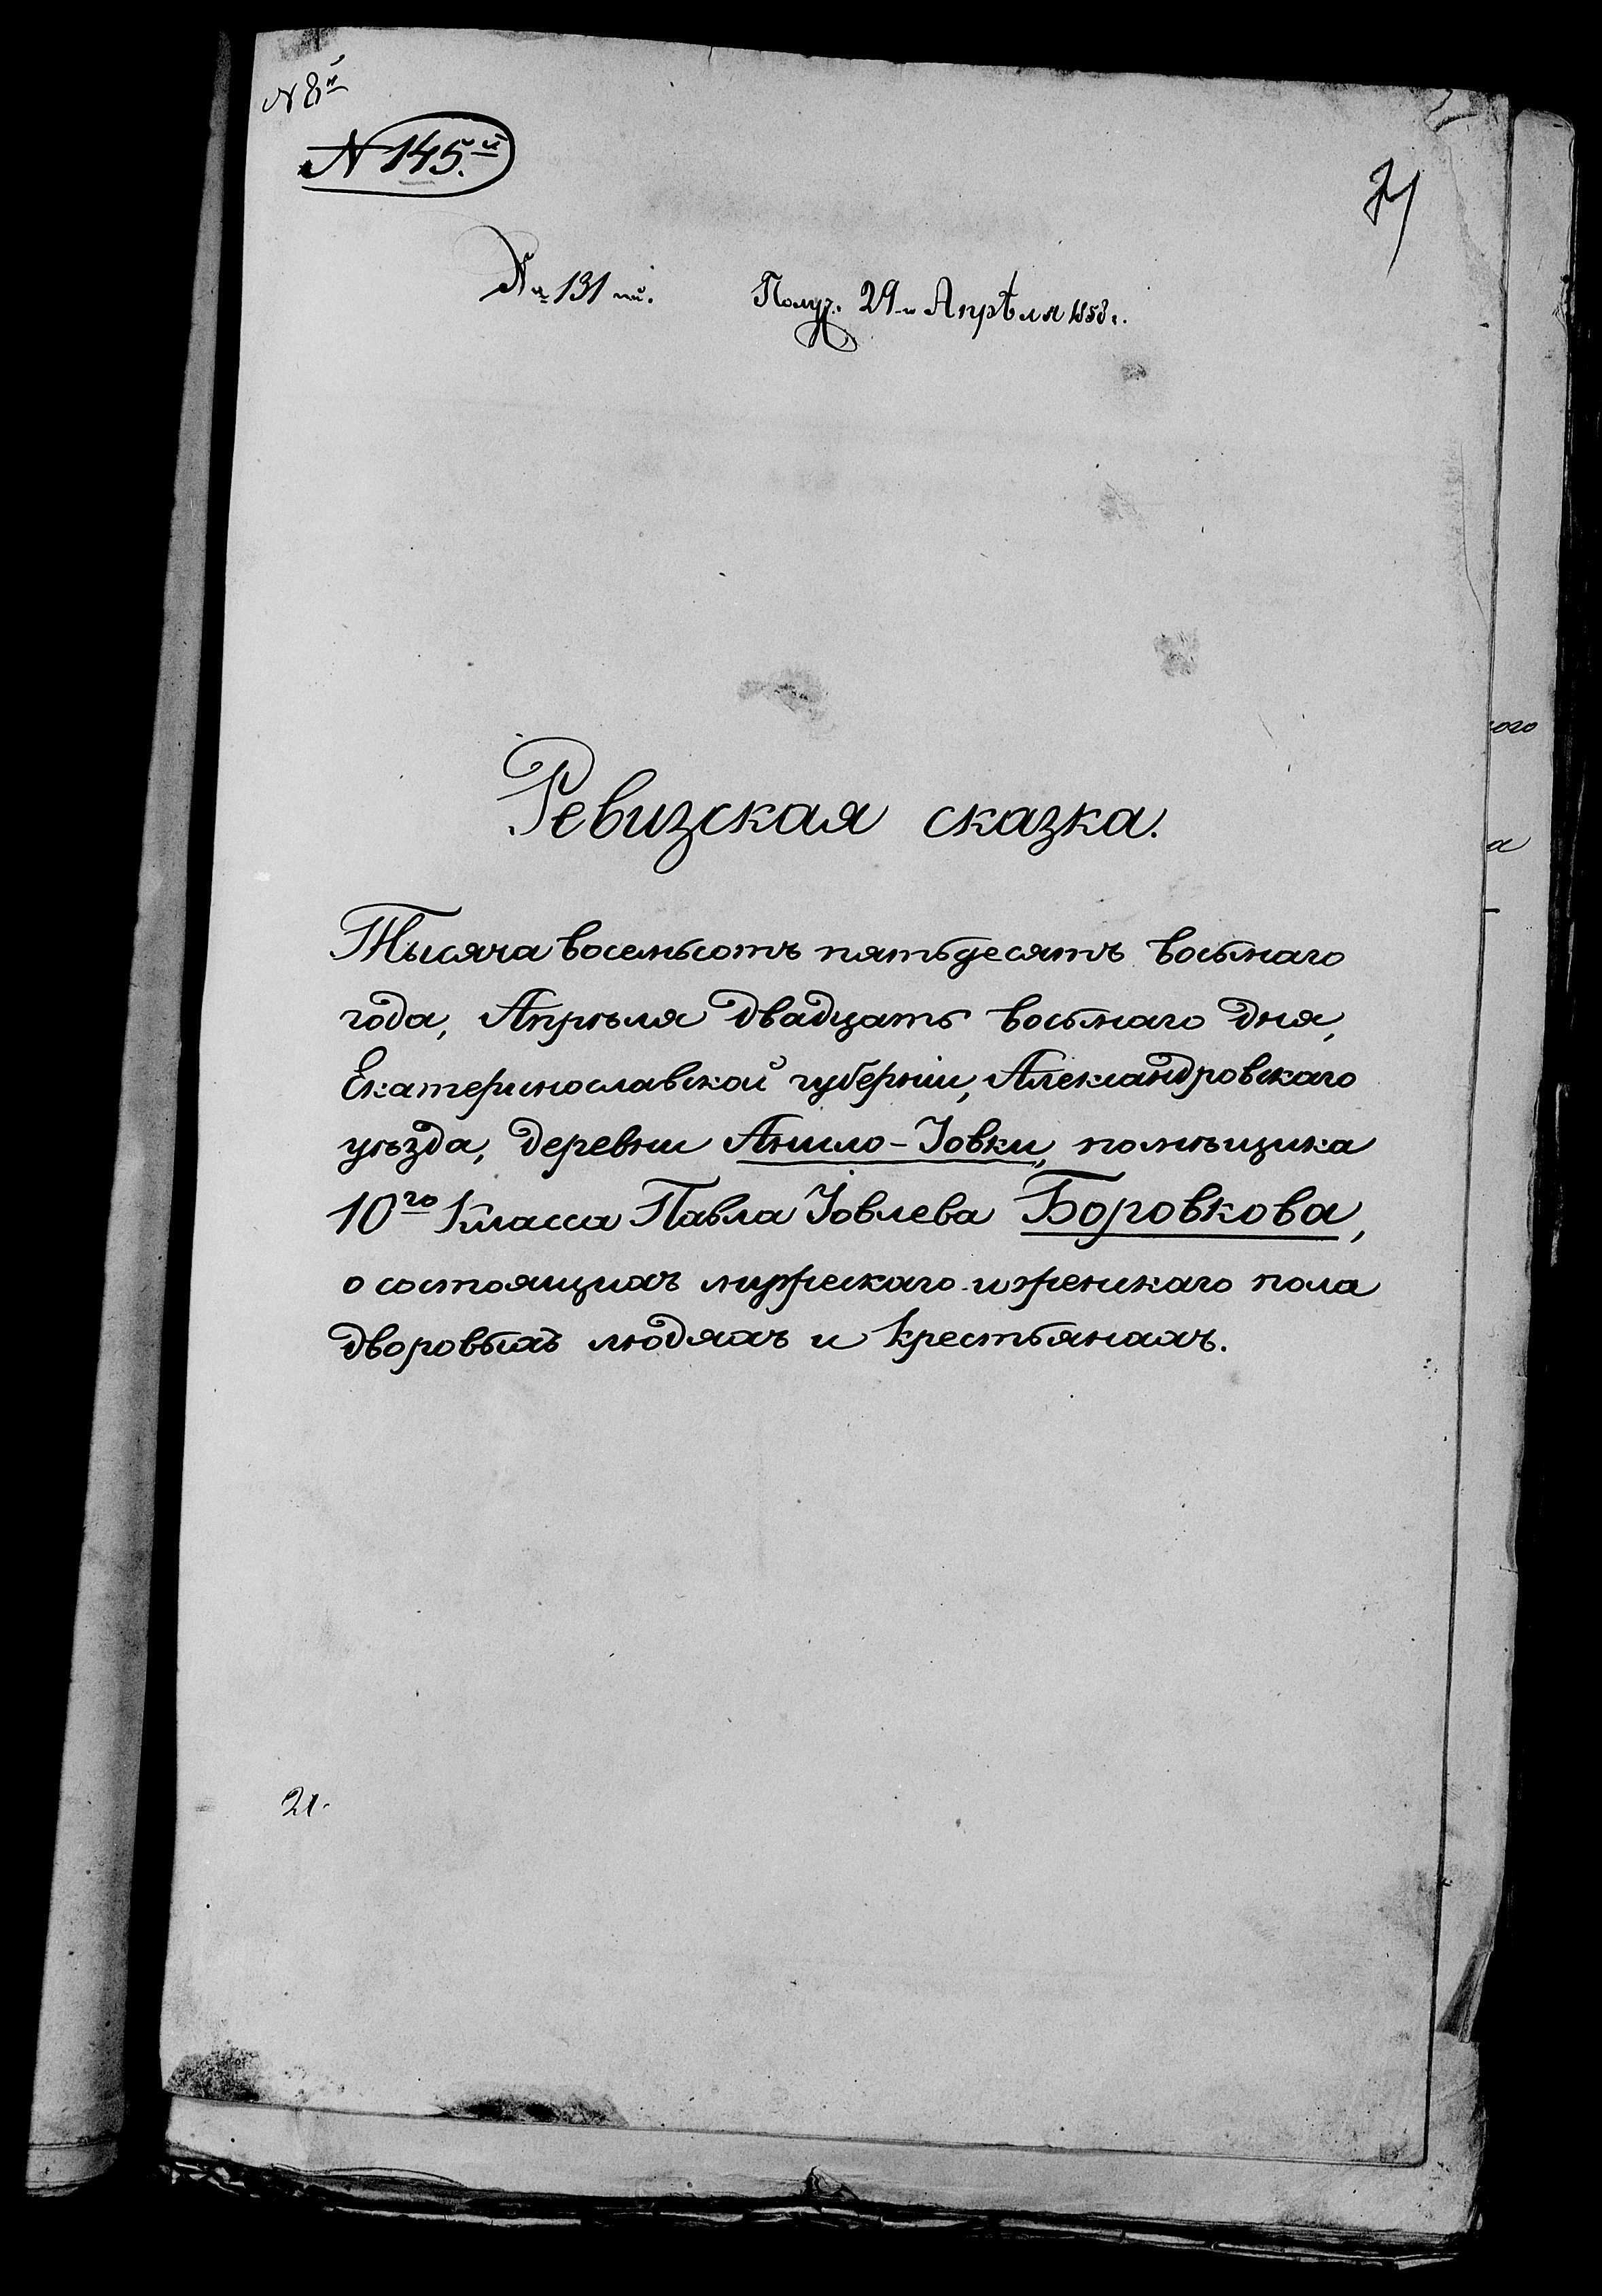 N 8й
N 145.й
№ 131й. Получ. 29го Апрѣля 1858 г.
Ревизская сказка.
Тысяча восемьсотъ пятьдесятъ восьмаго
года, Апрѣля двадцать восьмаго дня,
Екатеринославской губерніи, Александровскаго
уѣзда, деревни Анило-Іовки, помѣщика
10го Класса Павла Іовлева Боровкова,
о состоящихъ мужескаго и женскаго пола
дворовыхъ людяхъ и крестьянахъ.
21.
ого
а